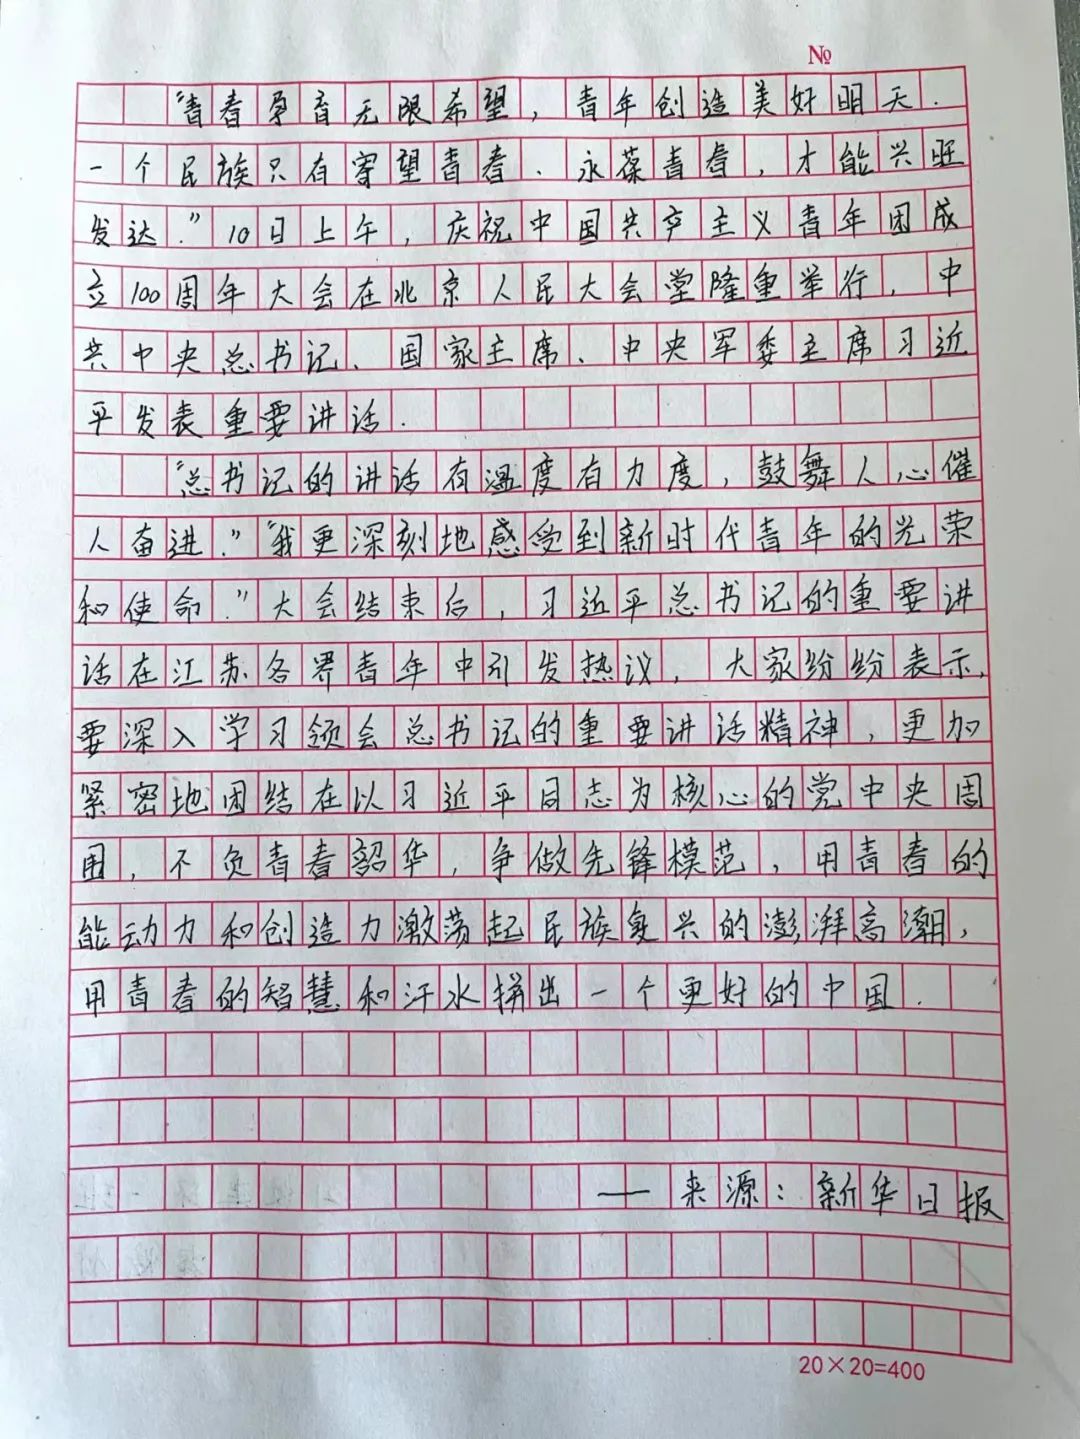 №
“青春孕育无限希望，青年创造美好明天.
一个民族只有寄望青春、永葆青春，才能兴旺
发达.”10日上午，庆祝中国共产主义青年团成
立100周年大会在北京人民大会堂隆重举行，中
共中央总书记、国家主席、中央军委主席习近
平发表重要讲话.
“总书记的讲话有温度有力度，鼓舞人心催
人奋进.”“我更深刻地感受到新时代青年的光荣
和使命.”大会结束后，习近平总书记的重要讲
话在江苏各界青年中引发热议，大家纷纷表示，
要深入学习领会总书记的重要讲话精神，更加
紧密地团结在以习近平同志为核心的党中央周
围，不负青春韶华，争做先锋模范，用青春的
能动力和创造力激荡起民族复兴的澎湃高潮，
用青春的智慧和汗水拼出一个更好的中国.
——来源：新华日报
20×20=400